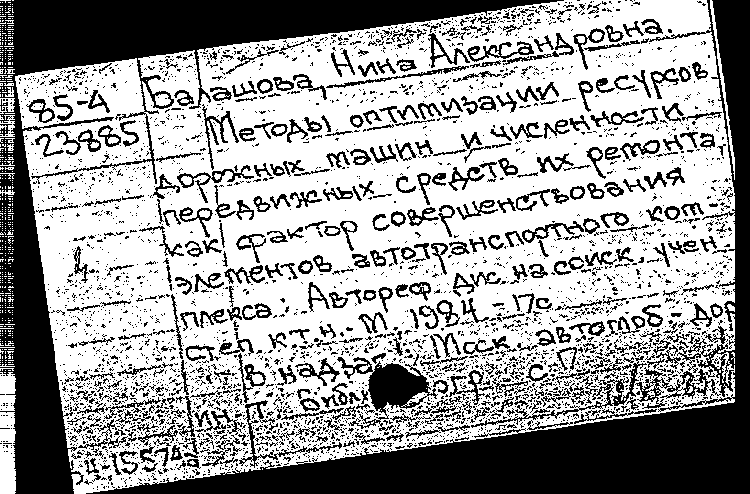 85-4
23885
Балашова, Нина Александровна.
Методы оптимизации ресурсов
дорожных машин и численности
передвижных средств их ремонта
как фактор совершенствования
элементов автотранспортного ком-
плекса: Автореф. дис. на соиск. учен.
степ. к.т.н. - М., 1984. - 17с
В надзаг.: Моск. автомоб.-дор
ин-т Библиогр. с.